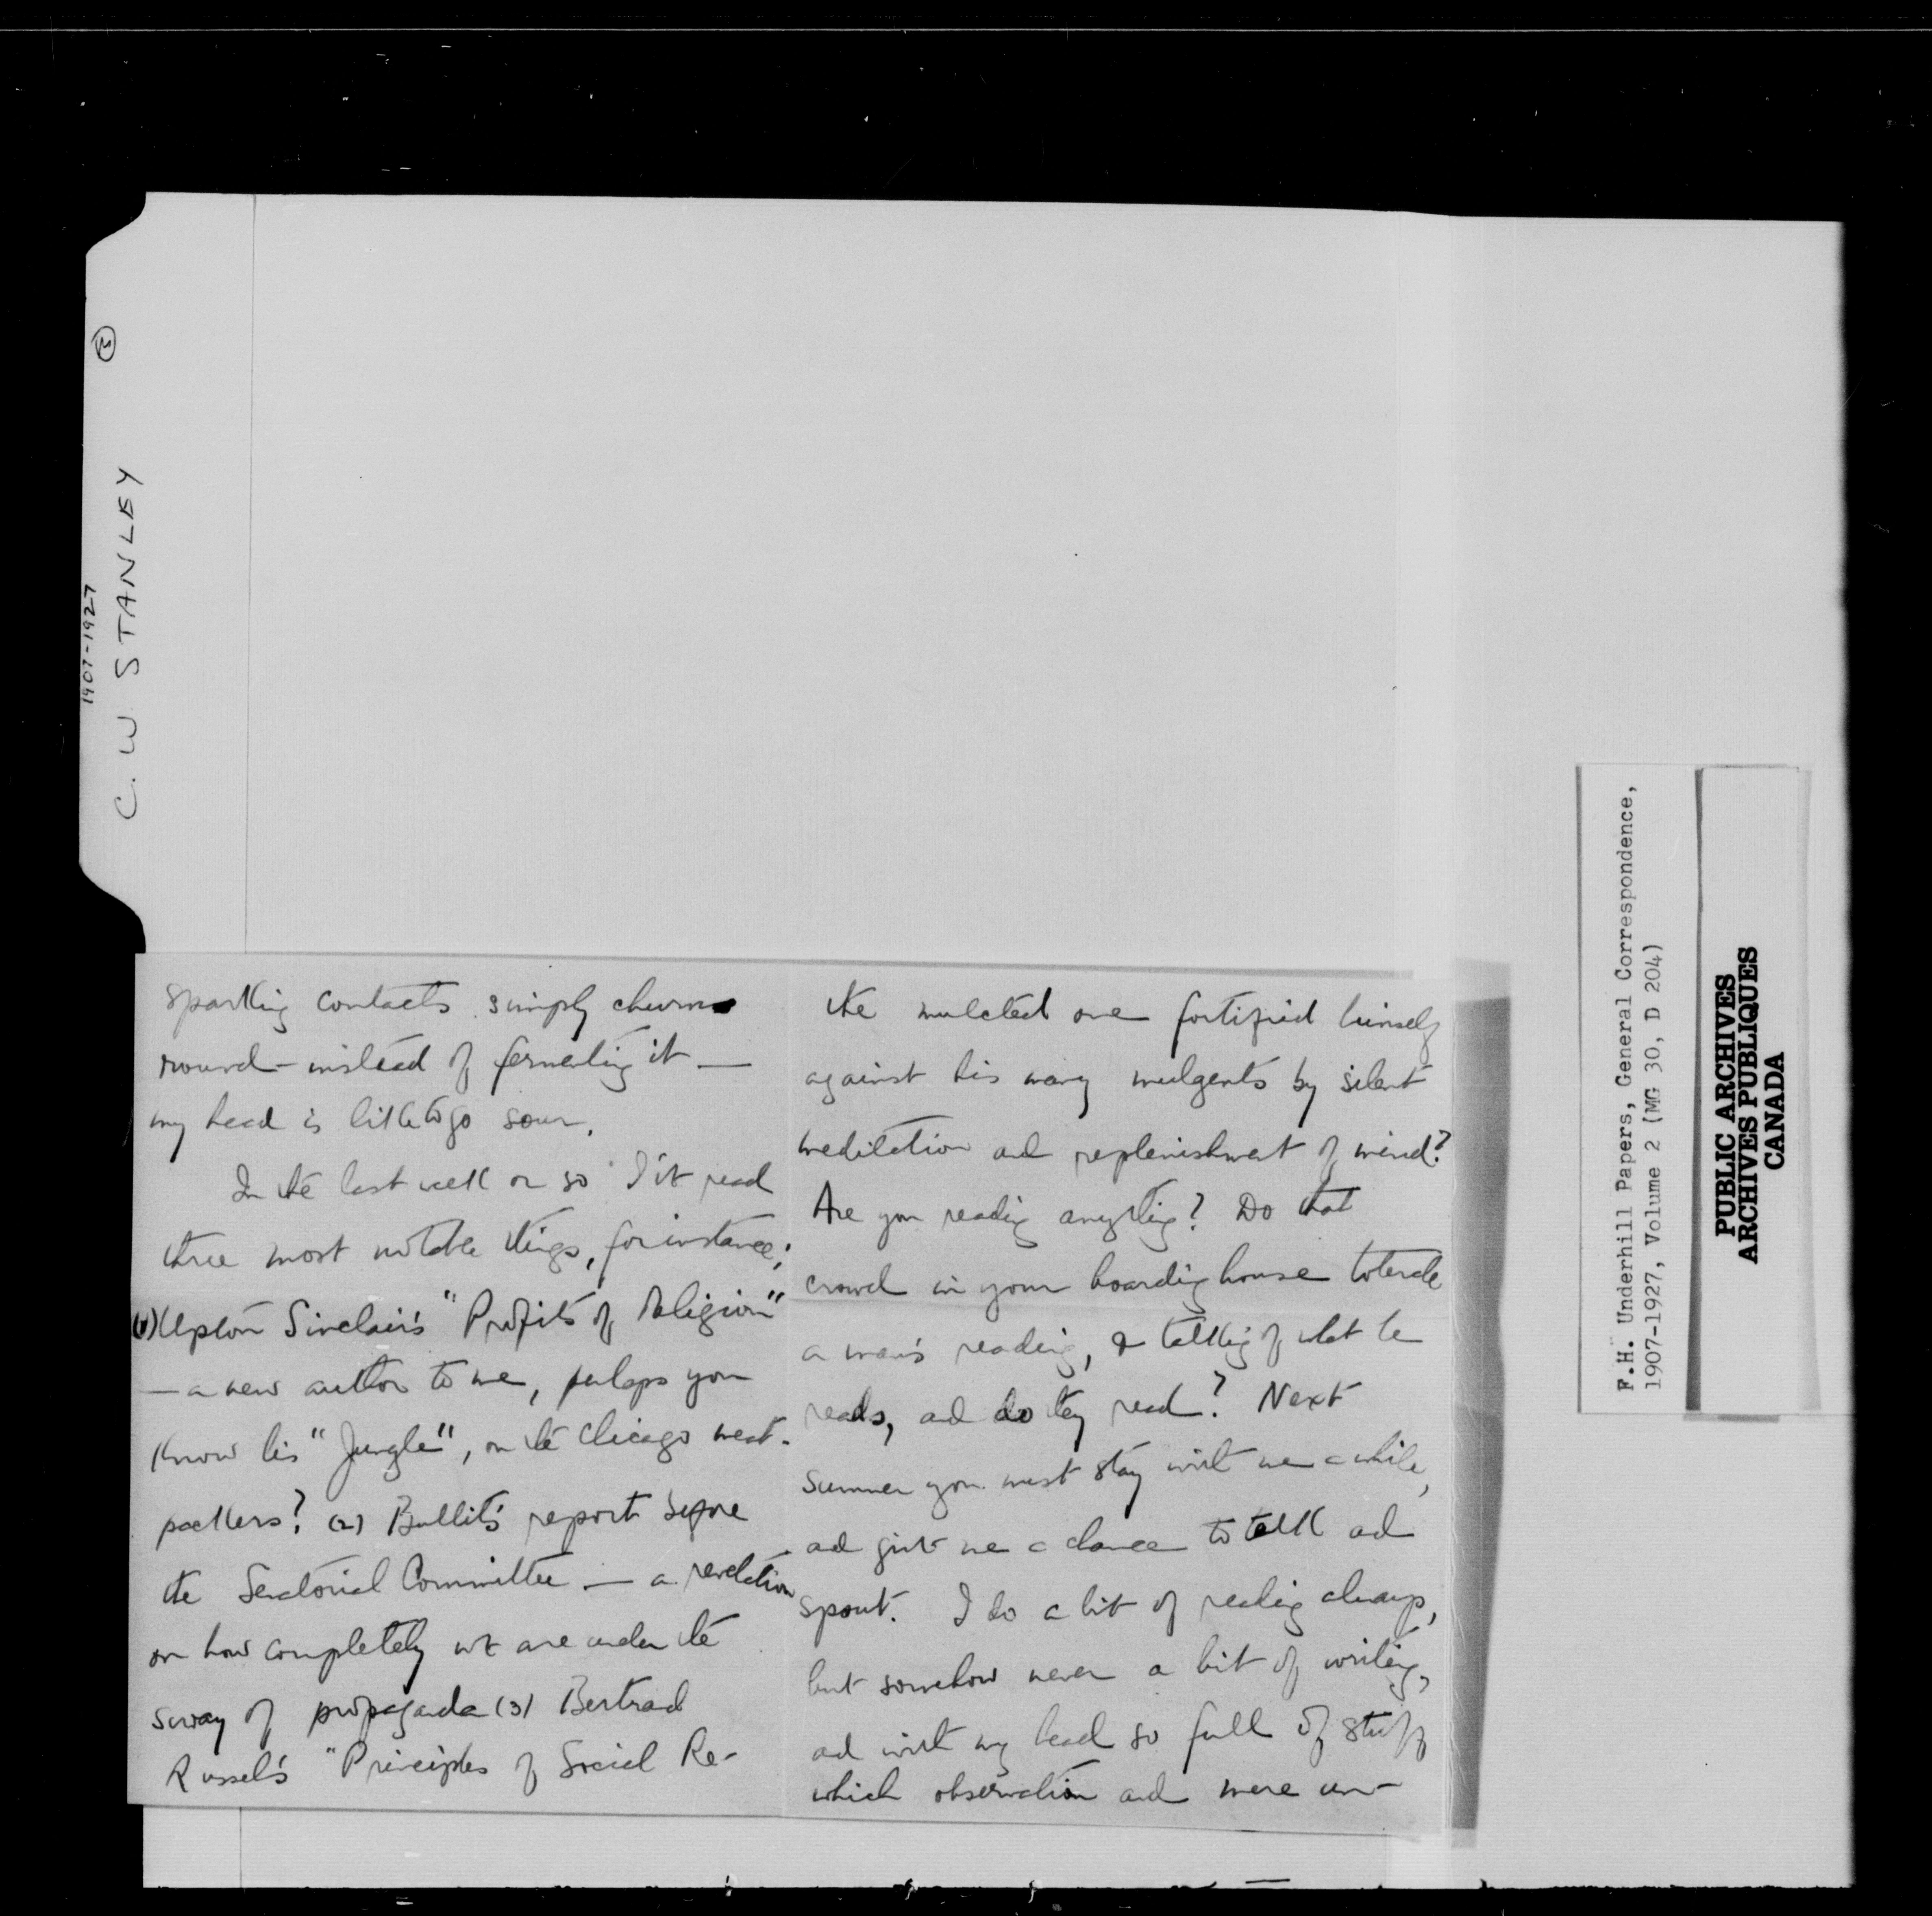 1907-1927
C. W STANLEY
sparking contacts simply churns
round - instead of fermenting it —
my head is like to go sour.
In the last week or so I've read
three most notable things, for instance;
(1) Upton Sinclair's "Profits of Religion"
— a new author to me, perhaps you
know his "Jungle", on the Chicago meat-
packers? (2) Bullit's report before
the Senatorial Committee — a revelation
on how completely we are under the
sway of propaganda (3) Bertrand
Russel's "Principles of Social Re-
the mulcted one fortified himself
against his many mulgents by silent
meditation and replenishment of mind?
Are you reading anything? Do that
crowd in your boarding house tolerate
a man's reading, & talking of what he
reads, and do they read? Next
summer you must stay with me a while,
and give me a chance to talk and
spout. I do a bit of reading always,
but somehow never a bit of writing,
and with my head so full of stuff
which observation and mere un-
F.H. Underhill Papers, General Correspondence,
1907-1927, Volume 2 (MG 30, D 204)
PUBLIC ARCHIVES
ARCHIVES PUBLIQUES
CANADA